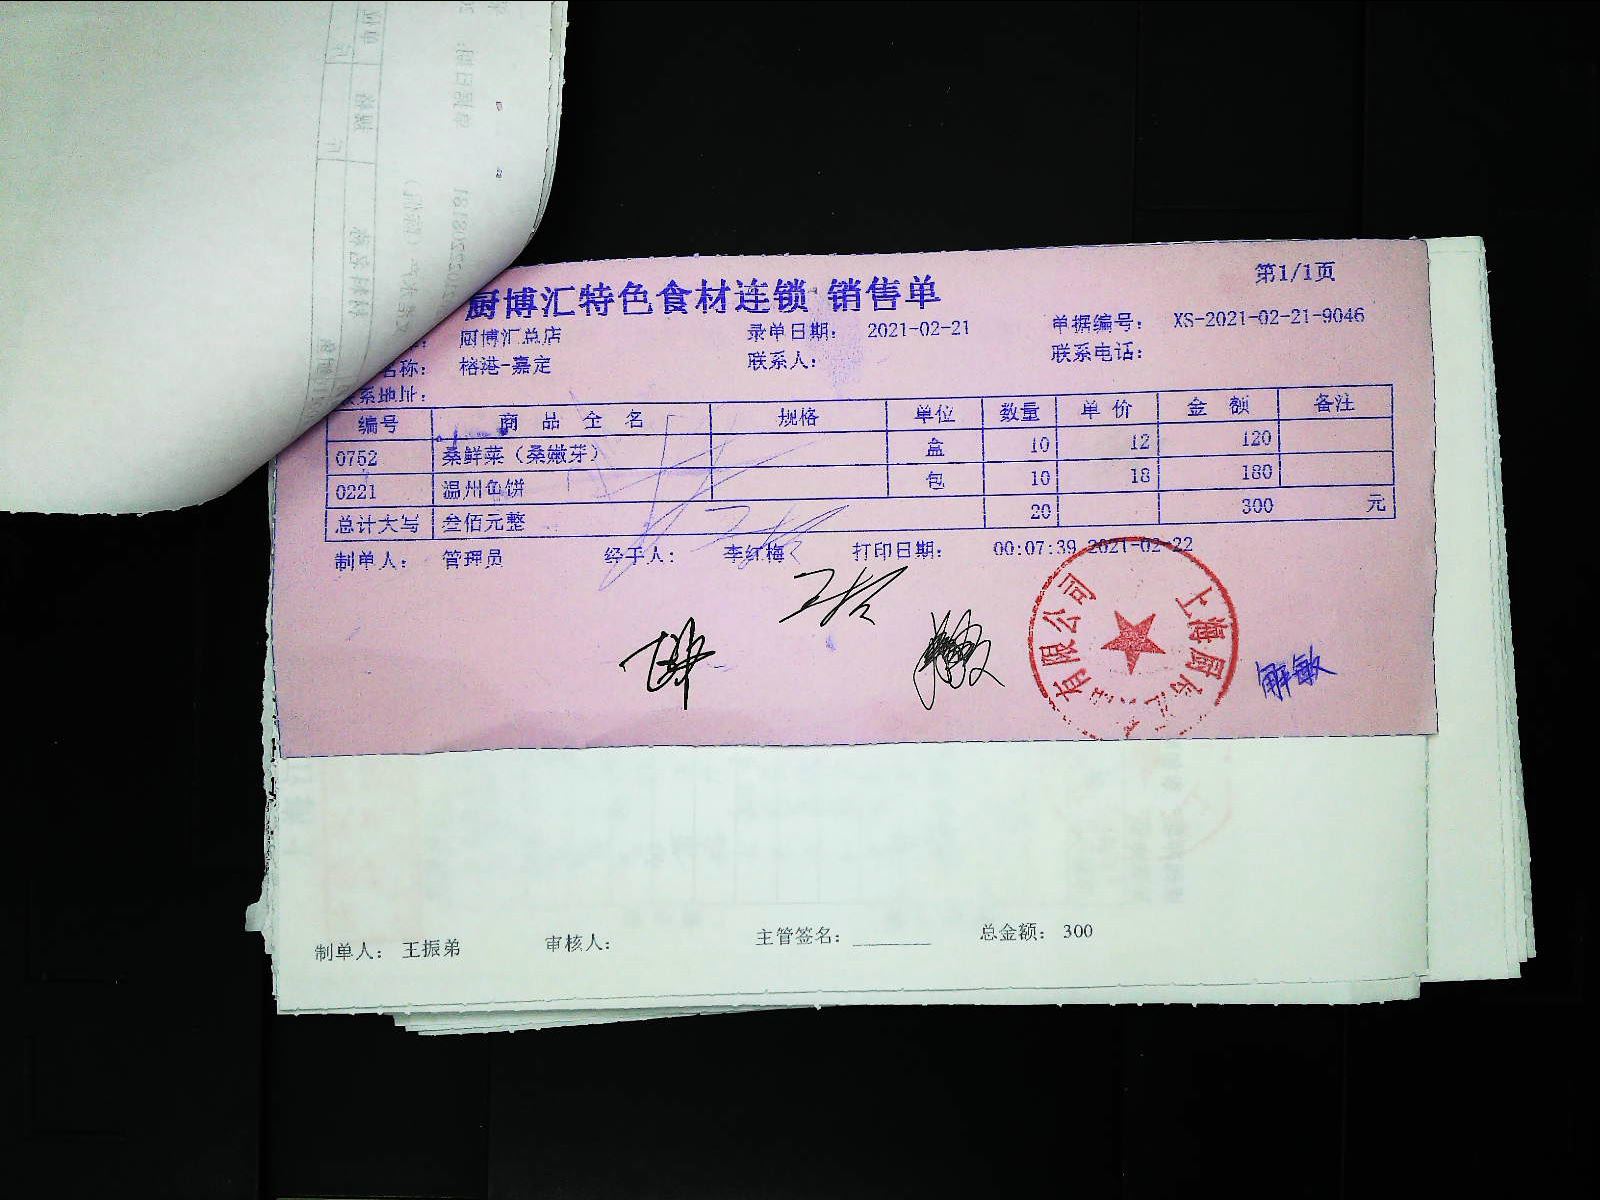 厨博汇特色食材连锁 销售单
第1/1页
厨博汇总店 录单日期： 2021-02-21 单据编号： XS-2021-02-21-9046
名称： 榕港-嘉定 联系人： 联系电话：
系地址：
编号 商品全名 规格 单位 数量 单价 金额 备注
0752 桑鲜菜（桑嫩芽） 盒 10 12 120
0221 温州鱼饼 包 10 18 180
总计大写 叁佰元整 20 300 元
制单人： 管理员 经手人： 李红梅 打印日期： 00:07:39 2021-02-22
上海厨 有限公司
解敏
制单人： 王振弟 审核人： 主管签名： 总金额： 300